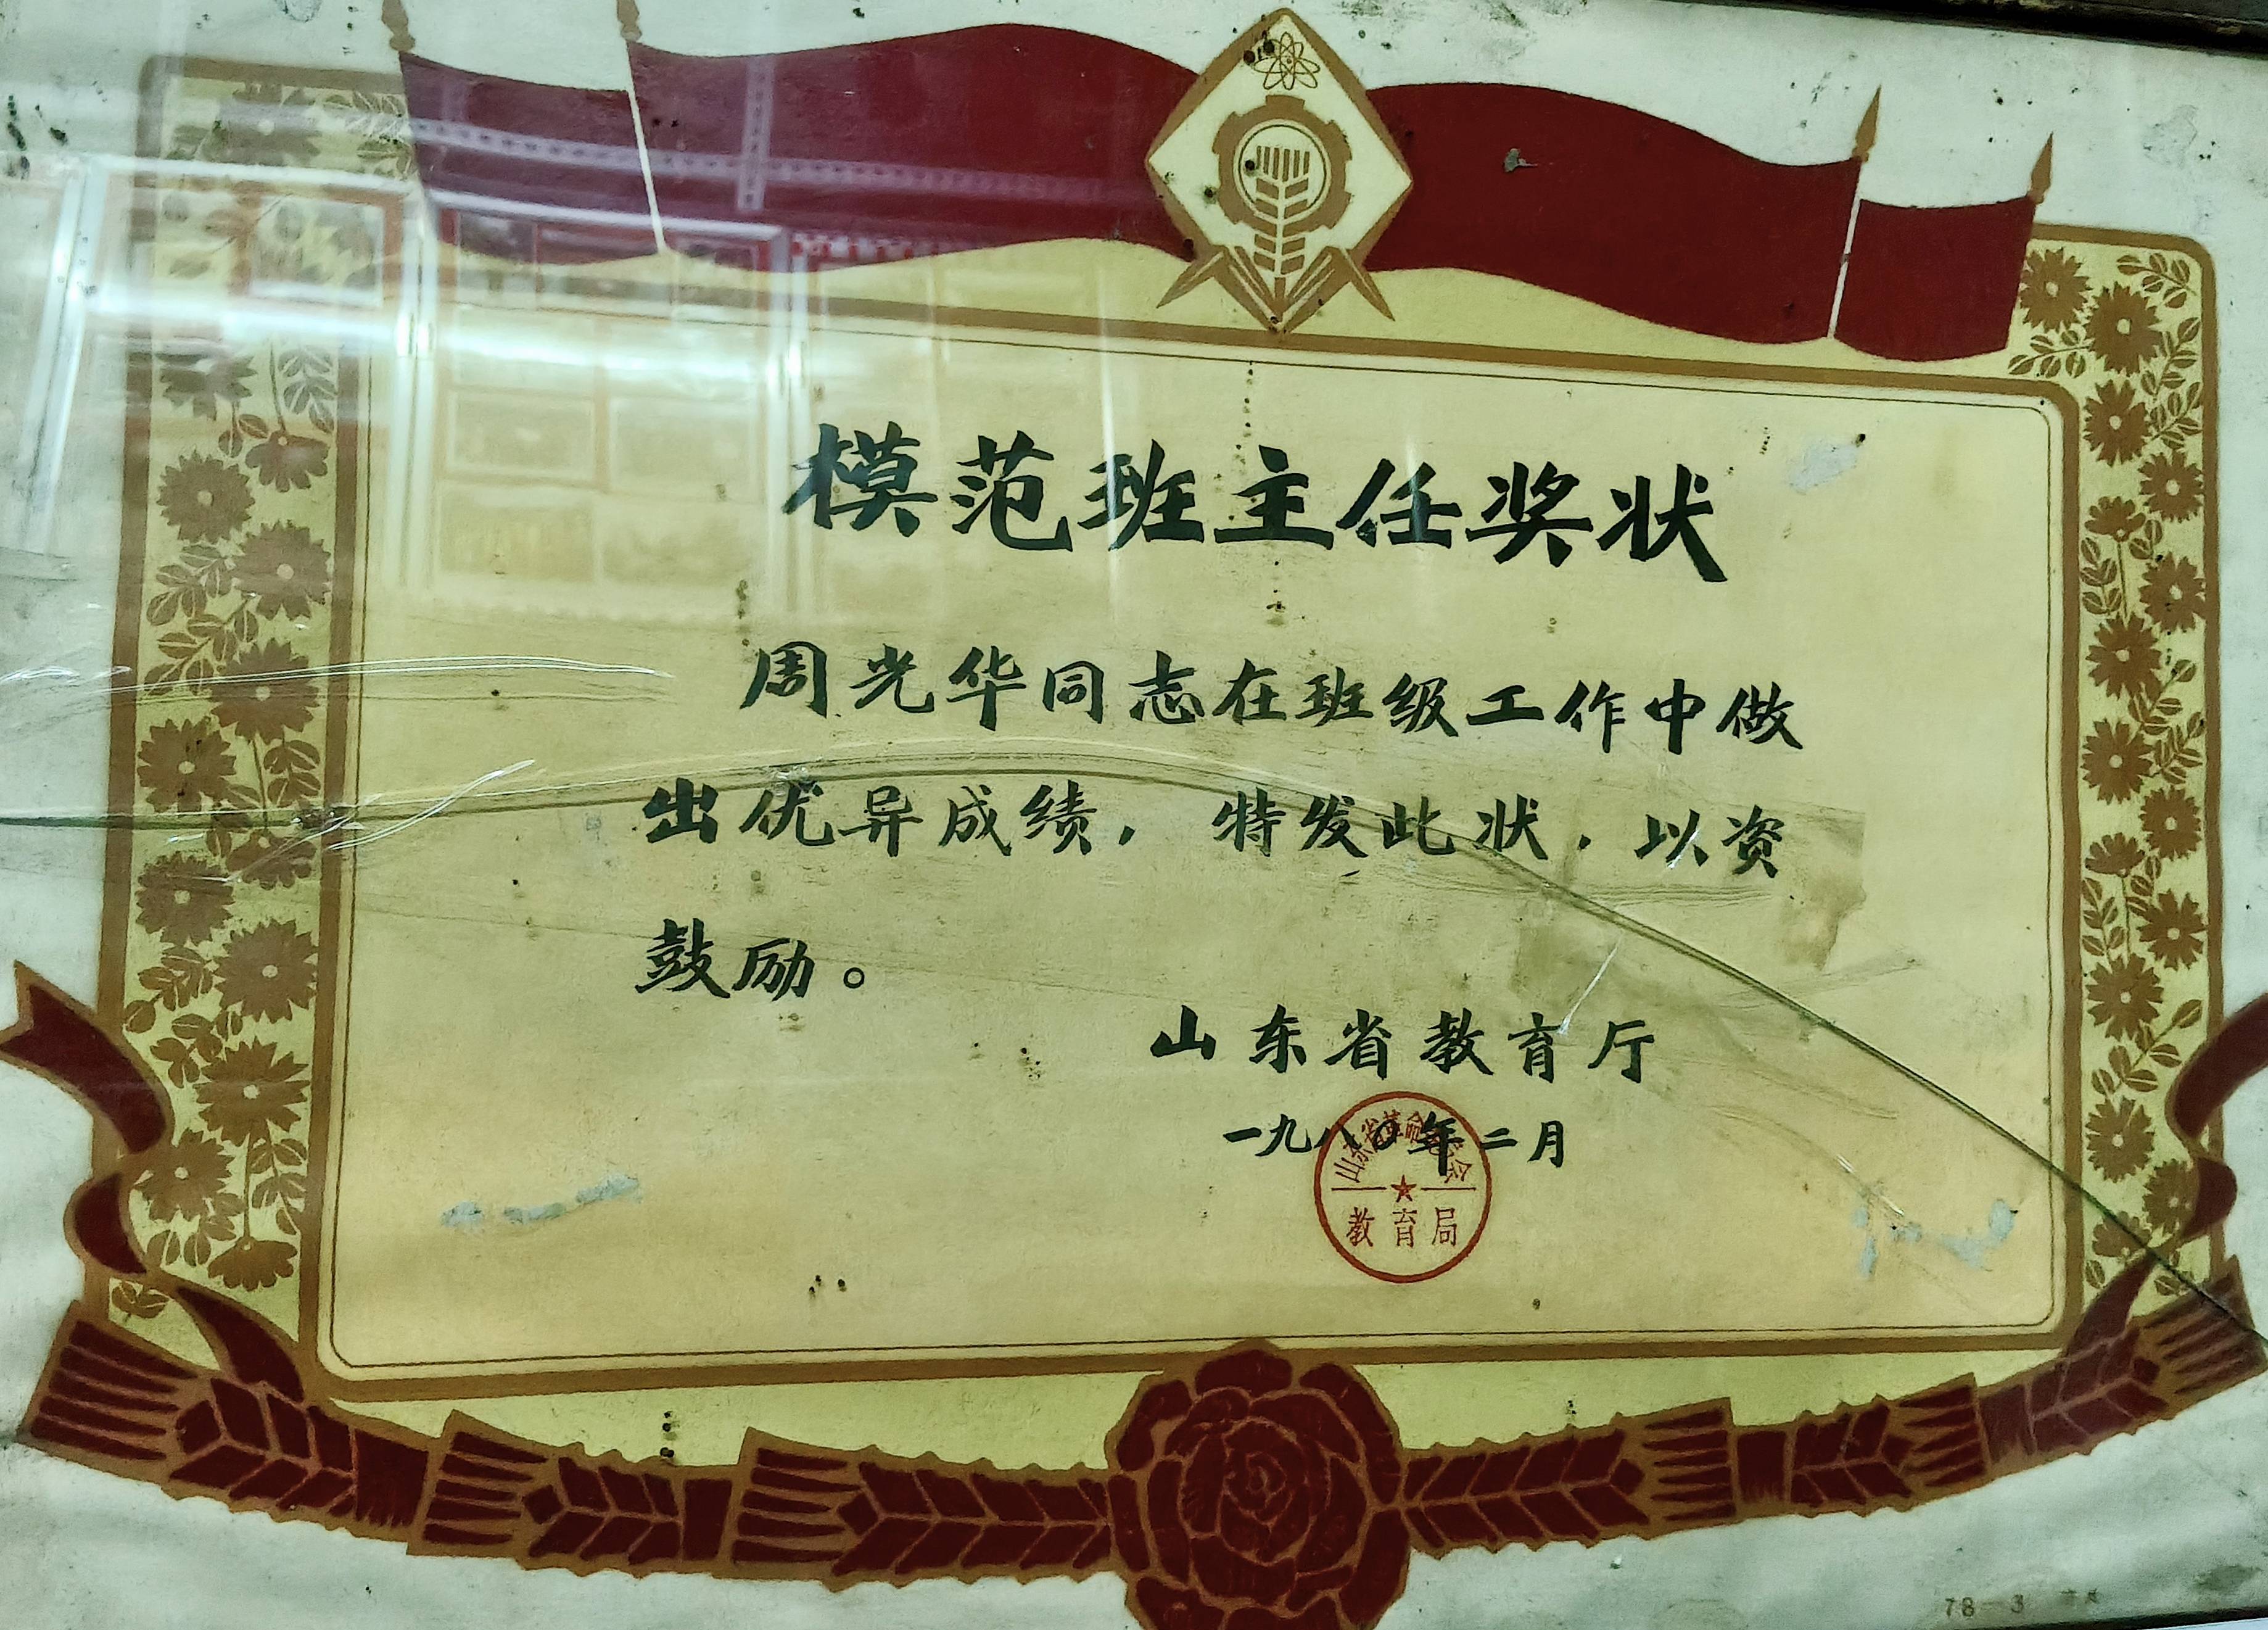 模范班主任奖状
周光华同志在班级工作中做
出优异成绩，特发此状，以资
鼓励。
山东省教育厅
一九八〇年二月
山东省革命委员会
教育局
78-3